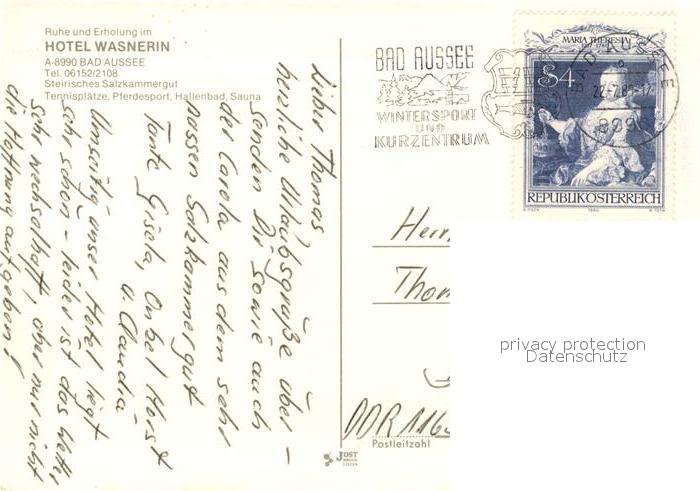 Ruhe und Erholung im
HOTEL WASNERIN
A-8990 BAD AUSSEE
Tel. 06152/2108
Steirisches Salzkammergut
Tennisplätze, Pferdesport, Hallenbad, Sauna
Lieber Thomas
herzliche Urlaubsgrüße über-
senden Dir sowie auch
der Carola aus dem sehr
nassen Salzkammergut
Tante Gisela, Onkel Horst
u. Claudia
Umseitig unser Hotel liegt
sehr schön - leider ist das Wetter
sehr wechselhaft, aber nur nicht
die Hoffnung aufgeben!
BAD AUSSEE
WINTERSPORT
UND
KURZENTRUM
BAD AUSSEE
MARIA THERESIA
S4
REPUBLIK ÖSTERREICH
1980
Herrn
Thom
privacy protection
Datenschutz
DDR 116
Postleitzahl
JOST